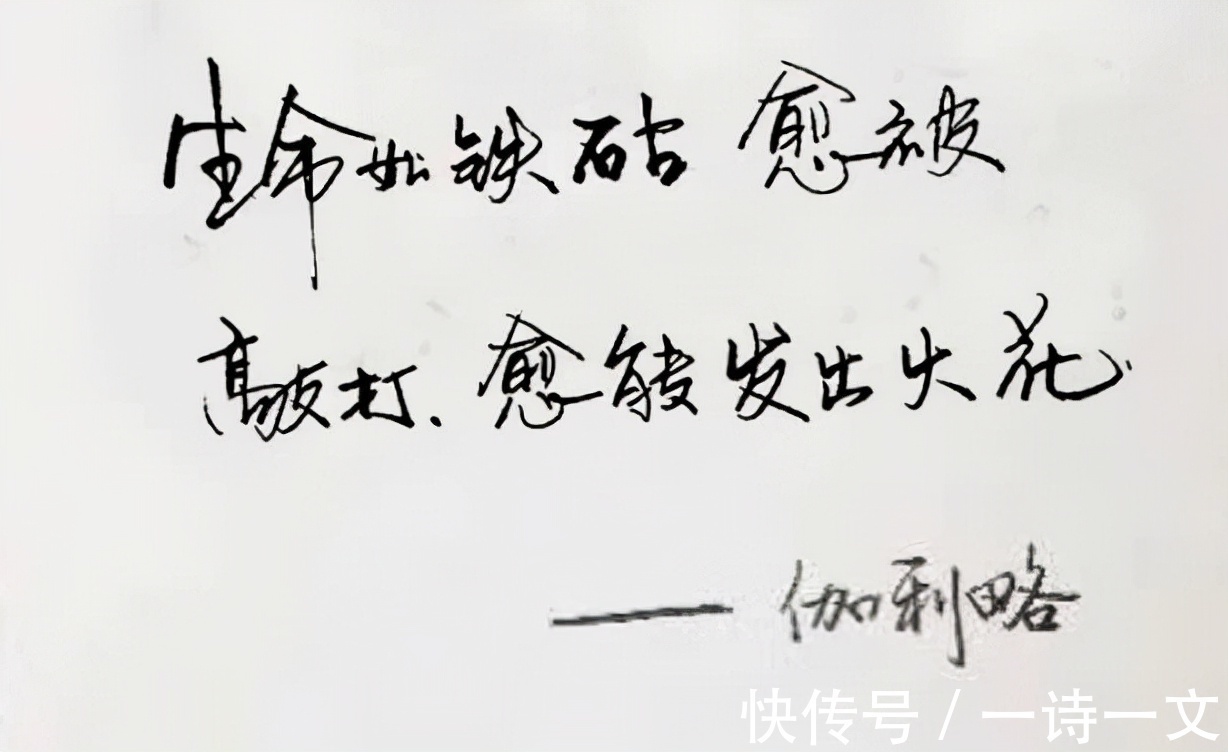 生命如铁砧 愈被
敲打.愈能发出火花
——伽利略
快传号/一诗一文